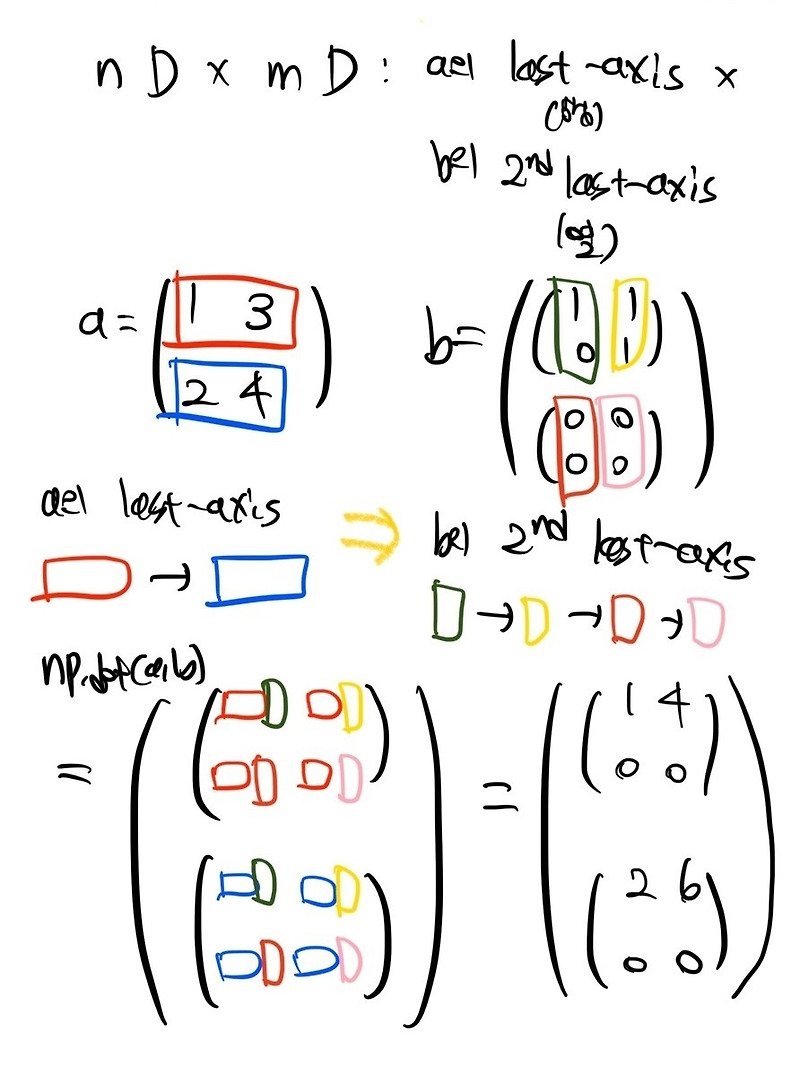 n D x m D : a의 last-axis x
(행)
b의 2nd last-axis
(열)
a = ( 1 3
2 4 )
b = ( ( 1 1
0 1 )
( 0 0
0 0 ) )
a의 last-axis ⇒
b의 2nd last-axis
→
→ → →
np.dot(a,b)
= =
( ( 1 4
0 0 )
( 2 6
0 0 ) )